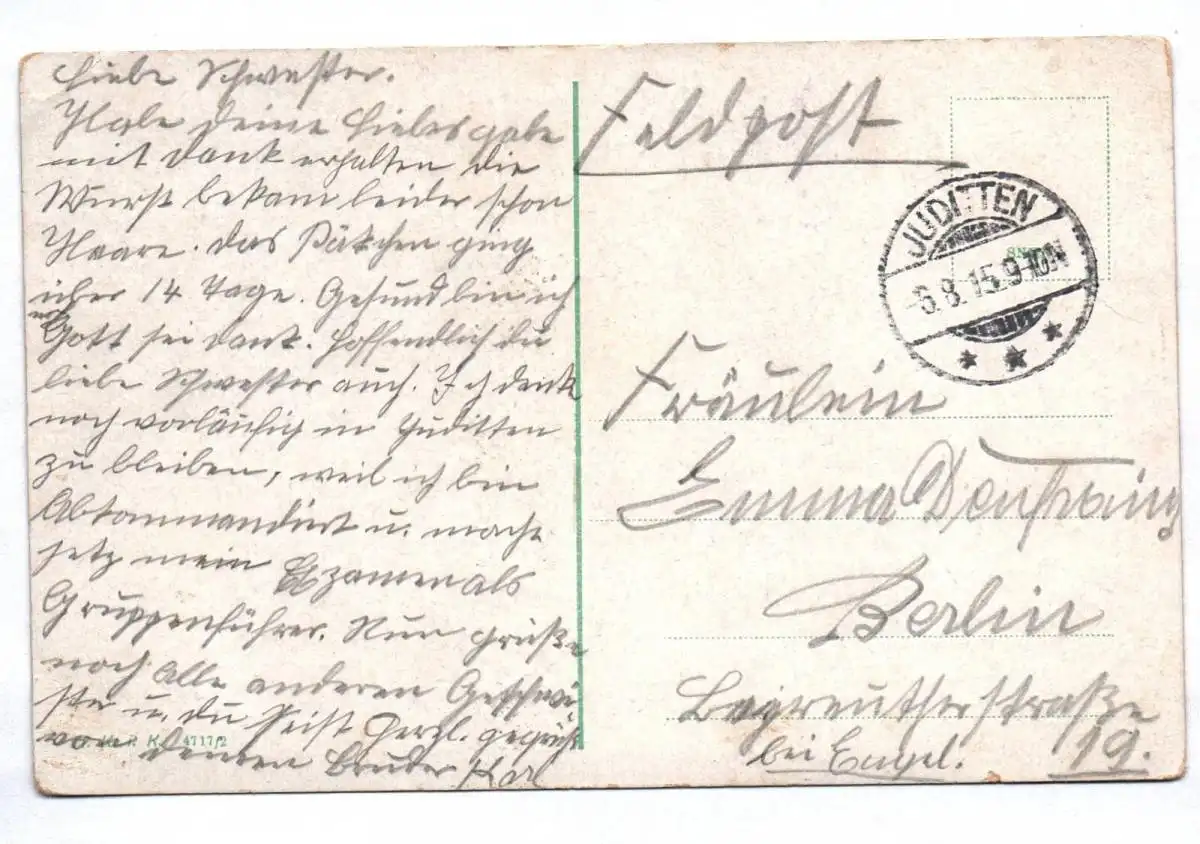 Liebe Schwester.
Habe deine Liebesgabe
mit dank erhalten die
Wurst bekam leider schon
Haare. das Päkchen ging
über 14 Tage. Gesund bin ich
Gott sei dank. Hoffendlich du
liebe Schwester auch. Ich denk
noch vorläufig in Juditten
zu bleiben, weil ich bin
Abkommandirt u. mache
jetz mein Exzamen als
Gruppenführer. Nun grüße
noch Alle anderen Geschwi
ster u. du seist Herzl. gegrüßt
von deinen Bruder Karl
4717/2
Feldpost
JUDITTEN
6.8.15.9-10N
Fräulein
Emma
Berlin
Bayreutherstraße
bei Engel. 19.